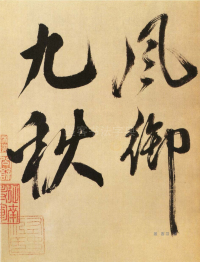 風御
九秋